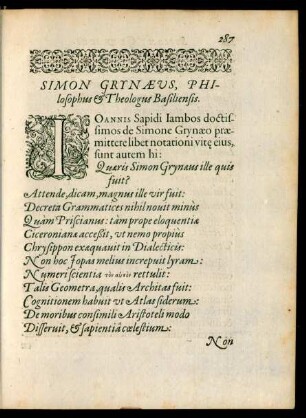 287
SIMON GRYNÆVS, PHI-
losophus & Theologus Basiliensis.
IOANNIS Sapidi Iambos doctis-
simos de Simone Grynæo præ-
mittere libet notationi vitę eius,
sunt autem hi:
Quæris Simon Grynæus ille quis
fuit?
Attende, dicam, magnus ille vir fuit:
Decreta Grammatices nihil nouit minùs
Quàm Priscianus: tàm prope eloquentiæ
Ciceronianæ acceßit, vt nemo propiùs
Chrysippon exæquauit in Dialecticis:
Non hoc Jopas melius increpuit lyram:
Numeri scientia rettulit:
Talis Geometra, qualis Architas fuit:
Cognitionem habuit vt Atlas siderum:
De moribus consimili Aristoteli modo
Disseruit, & sapientiâ cœlestium:
Non